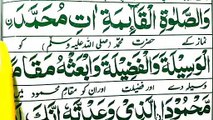 وَالصَّلٰوةِ الْقَآئِمَةِ اٰتِ مُحَمَّدَ
نماز کے حضرت محمد (صلی اللہ علیہ وسلم) کو
الْوَسِيْلَةَ وَالْفَضِيْلَةَ وَابْعَثْهُ مَقَامًا
وسیلہ دے اور فضیلت اور ان کو مقامِ محمود میں
مَّحْمُوْدَا الَّذِيْ وَعَدْتَّهٗ اِنَّكَ لَا